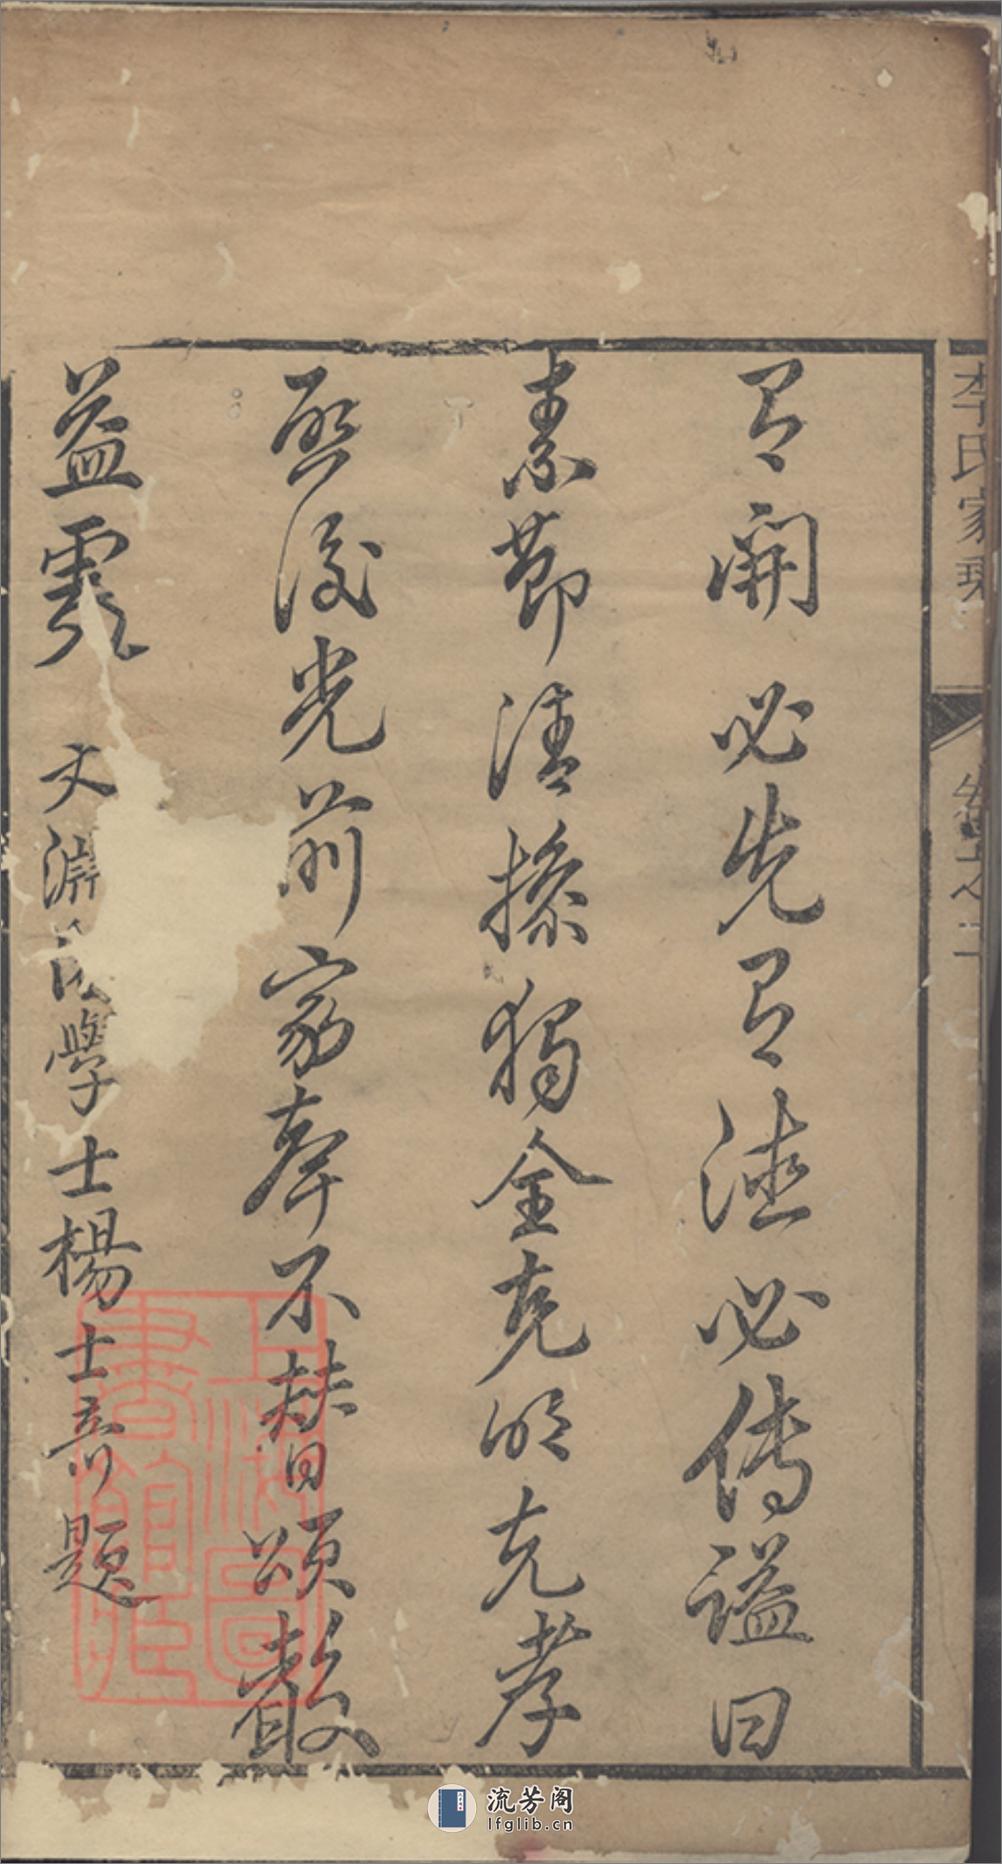 李氏家乘
卷之二
有開必先有德必傳謚曰
素節清操獨全克明克孝
啟後光前家奉不替日頌
益靈
文淵閣學士楊士奇題
上海圖書館藏
流芳阁
lfglib.cn